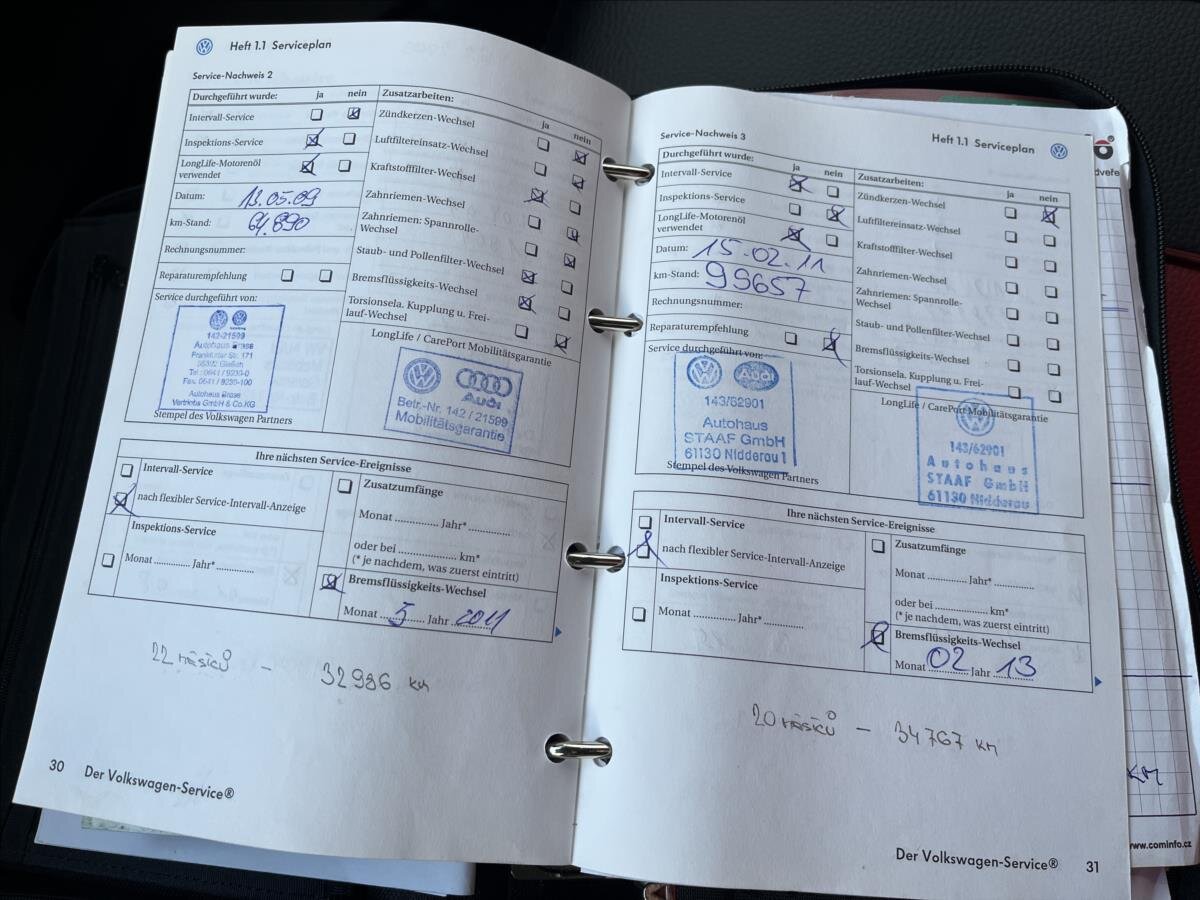 Heft 1.1 Serviceplan
Service-Nachweis 2
Durchgeführt wurde: ja nein
Intervall-Service
Inspektions-Service
LongLife-Motorenöl
verwendet
Datum: 13.05.09
km-Stand: 64.890
Rechnungsnummer:
Reparaturempfehlung
Service durchgeführt von:
142-21599
Autohaus Brase
Frankfurter Str. 171
Tel.: 0641 / 9230-0
Fax: 0641 / 9230-100
Autohaus Brase
Vertriebs GmbH & Co.KG
Stempel des Volkswagen Partners
Zusatzarbeiten: ja nein
Zündkerzen-Wechsel
Luftfiltereinsatz-Wechsel
Kraftstofffilter-Wechsel
Zahnriemen-Wechsel
Zahnriemen: Spannrolle-
Wechsel
Staub- und Pollenfilter-Wechsel
Bremsflüssigkeits-Wechsel
Torsionsela. Kupplung u. Frei-
lauf-Wechsel
LongLife / CarePort Mobilitätsgarantie
Audi
Betr.-Nr. 142 / 21599
Mobilitätsgarantie
Ihre nächsten Service-Ereignisse
Intervall-Service
nach flexibler Service-Intervall-Anzeige
Inspektions-Service
Monat .............. Jahr* ............
Zusatzumfänge
Monat .............. Jahr* .............
oder bei .................... km*
(* je nachdem, was zuerst eintritt)
Bremsflüssigkeits-Wechsel
Monat 5 Jahr 2011
22 měsíců - 32986 km
30 Der Volkswagen-Service®
Heft 1.1 Serviceplan
Service-Nachweis 3
Durchgeführt wurde: ja nein
Intervall-Service
Inspektions-Service
LongLife-Motorenöl
verwendet
Datum: 15.02.11
km-Stand: 99657
Rechnungsnummer:
Reparaturempfehlung
Service durchgeführt von:
Audi
143/62901
Autohaus
STAAF GmbH
61130 Nidderau 1
Stempel des Volkswagen Partners
Zusatzarbeiten: ja nein
Zündkerzen-Wechsel
Luftfiltereinsatz-Wechsel
Kraftstofffilter-Wechsel
Zahnriemen-Wechsel
Zahnriemen: Spannrolle-
Wechsel
Staub- und Pollenfilter-Wechsel
Bremsflüssigkeits-Wechsel
Torsionsela. Kupplung u. Frei-
lauf-Wechsel
LongLife / CarePort Mobilitätsgarantie
143/62901
Autohaus
STAAF GmbH
61130 Nidderau
Ihre nächsten Service-Ereignisse
Intervall-Service
nach flexibler Service-Intervall-Anzeige
Inspektions-Service
Monat .............. Jahr* ............
Zusatzumfänge
Monat .............. Jahr* .............
oder bei .................... km*
(* je nachdem, was zuerst eintritt)
Bremsflüssigkeits-Wechsel
Monat 02 Jahr 13
20 měsíců - 34767 km
Der Volkswagen-Service® 31
km
www.cominfo.cz